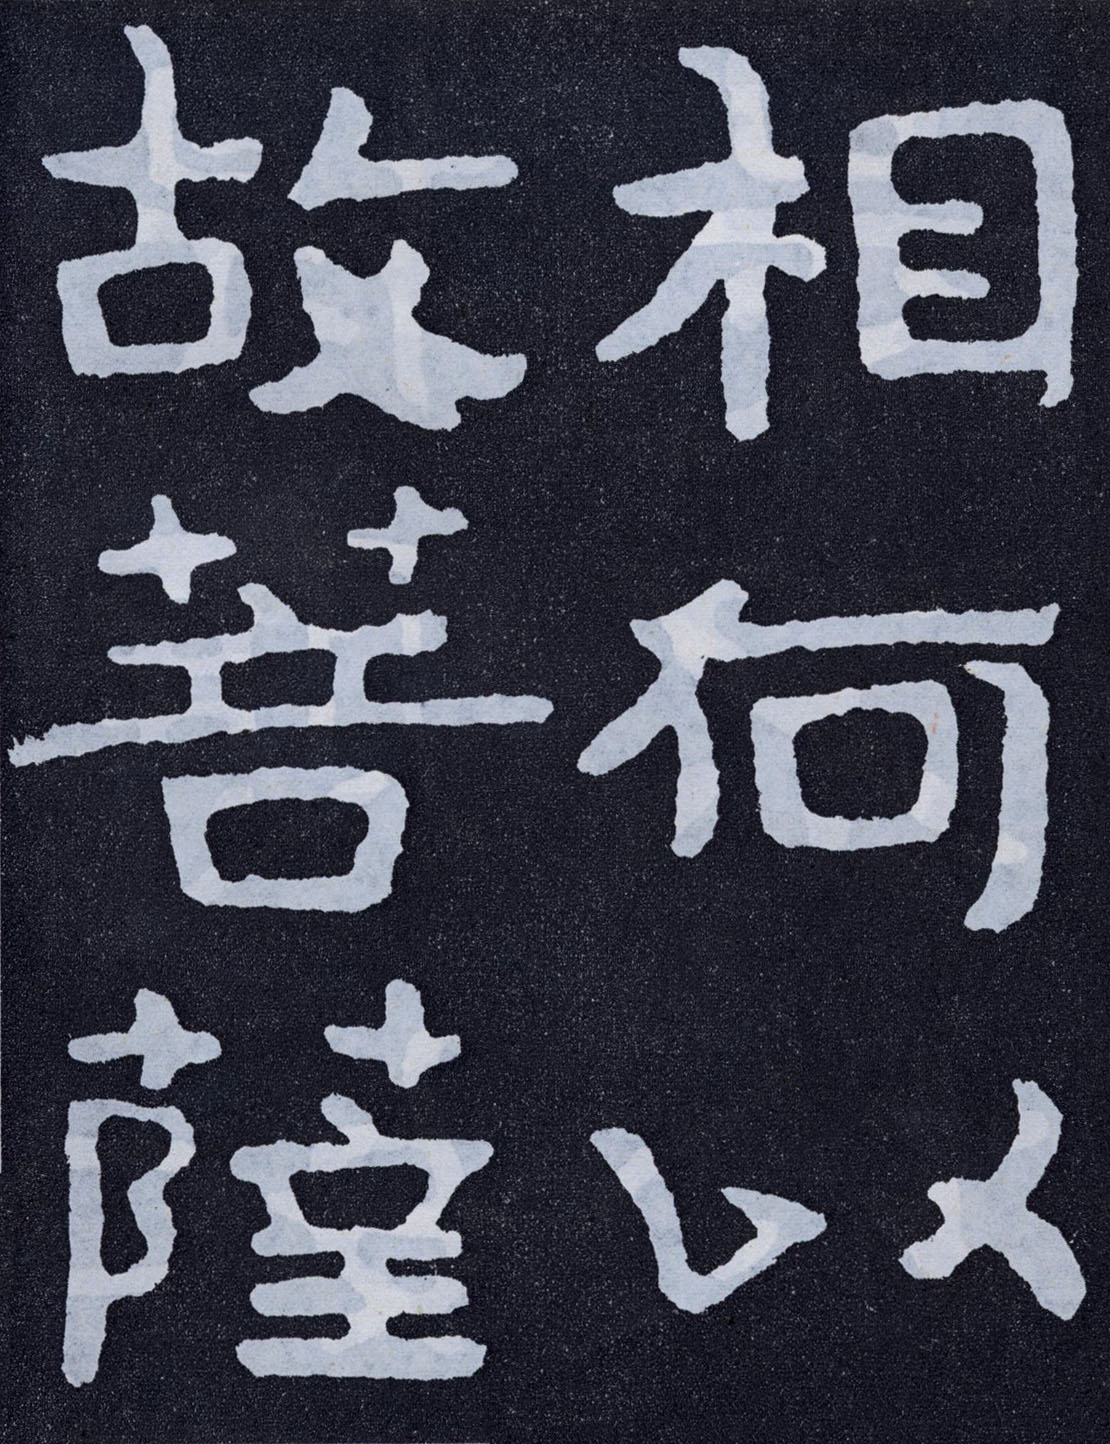 相何以
故菩薩